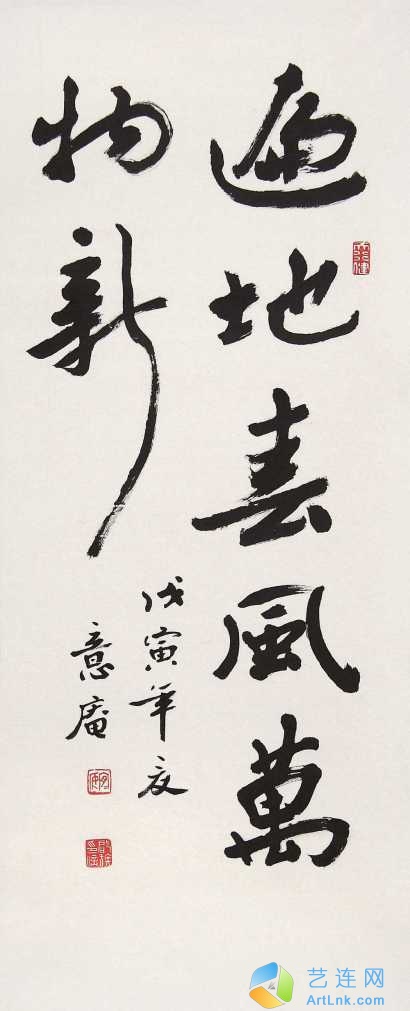 遍地春風萬
物新
戊寅年夏
意庵
艺连网
ArtLnk.com